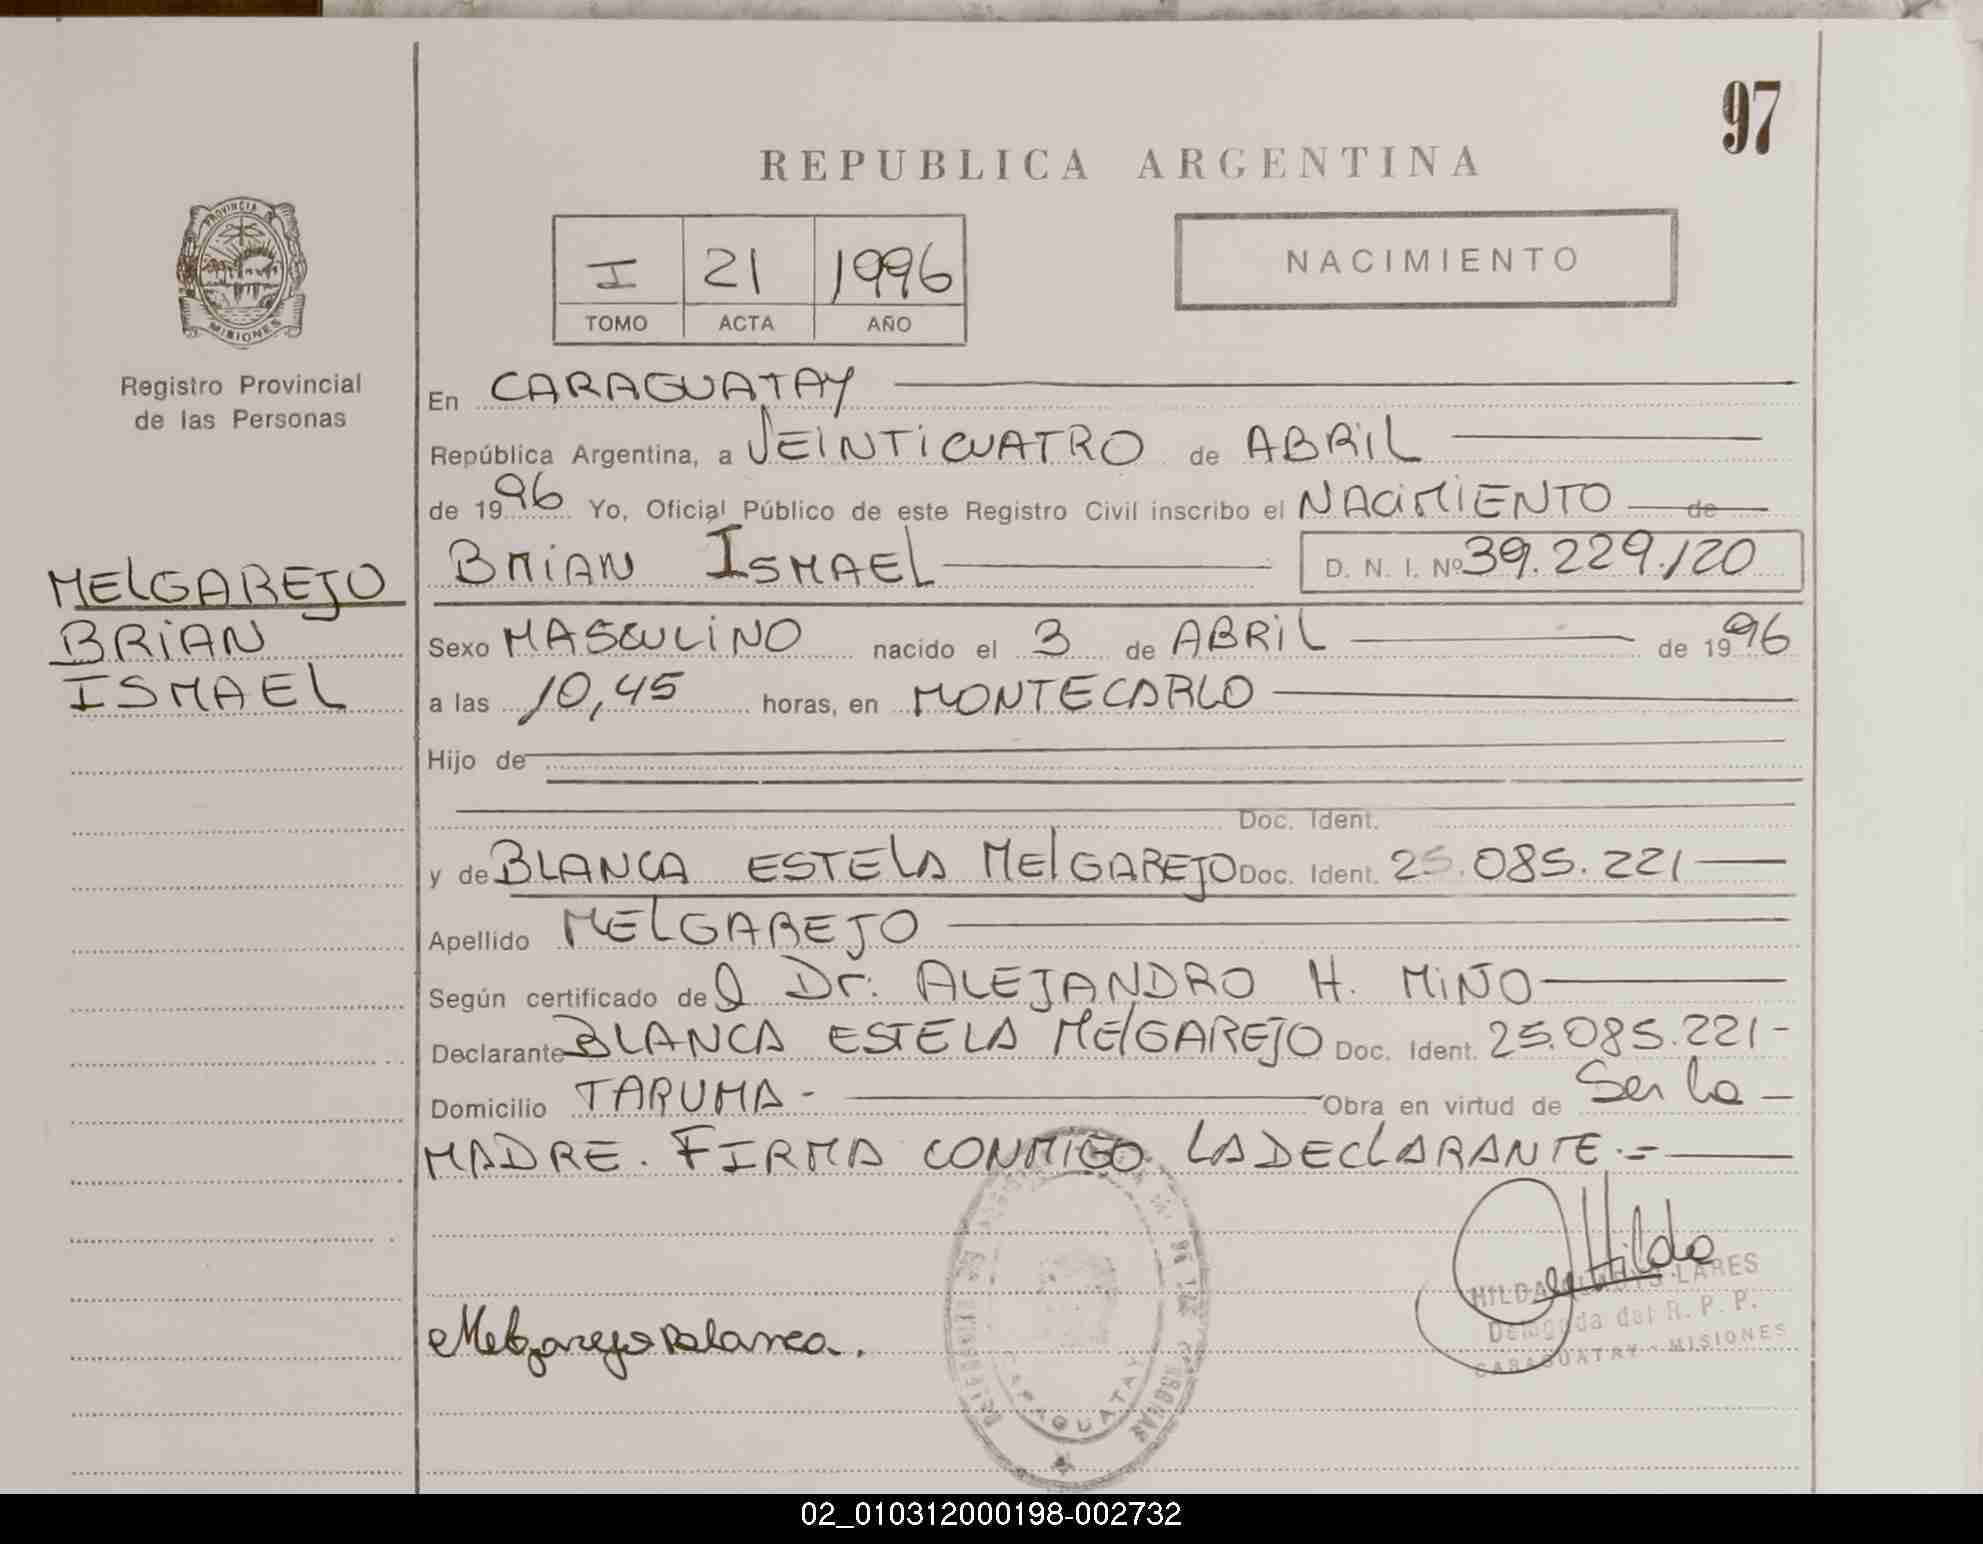 97
REPUBLICA ARGENTINA
PROVINCIA
MISIONES
Registro Provincial
de las Personas
I 21 1996
TOMO ACTA AÑO
NACIMIENTO
En CARAGUATAY
República Argentina, a VEINTICUATRO de ABRIL
de 1996 Yo, Oficial Público de este Registro Civil inscribo el NACIMIENTO de
BRIAN ISMAEL D. N. I. Nº 39.229.120
MELGAREJO
BRIAN
ISMAEL
Sexo MASCULINO nacido el 3 de ABRIL de 1996
a las 10,45 horas, en MONTECARLO
Hijo de
Doc. Ident.
y de BLANCA ESTELA MELGAREJO Doc. Ident. 25.085.221
Apellido MELGAREJO
Según certificado del Dr. ALEJANDRO H. MIÑO
Declarante BLANCA ESTELA MELGAREJO Doc. Ident. 25.085.221-
Domicilio TARUMA- Obra en virtud de Ser la
MADRE. FIRMA CONMIGO LA DECLARANTE.=
Melgarejo Blanca.
Hilda
HILDA GLADYS LARES
Delegada del R. P. P.
CARAGUATAY - MISIONES
CARAGUATAY
02_010312000198-002732